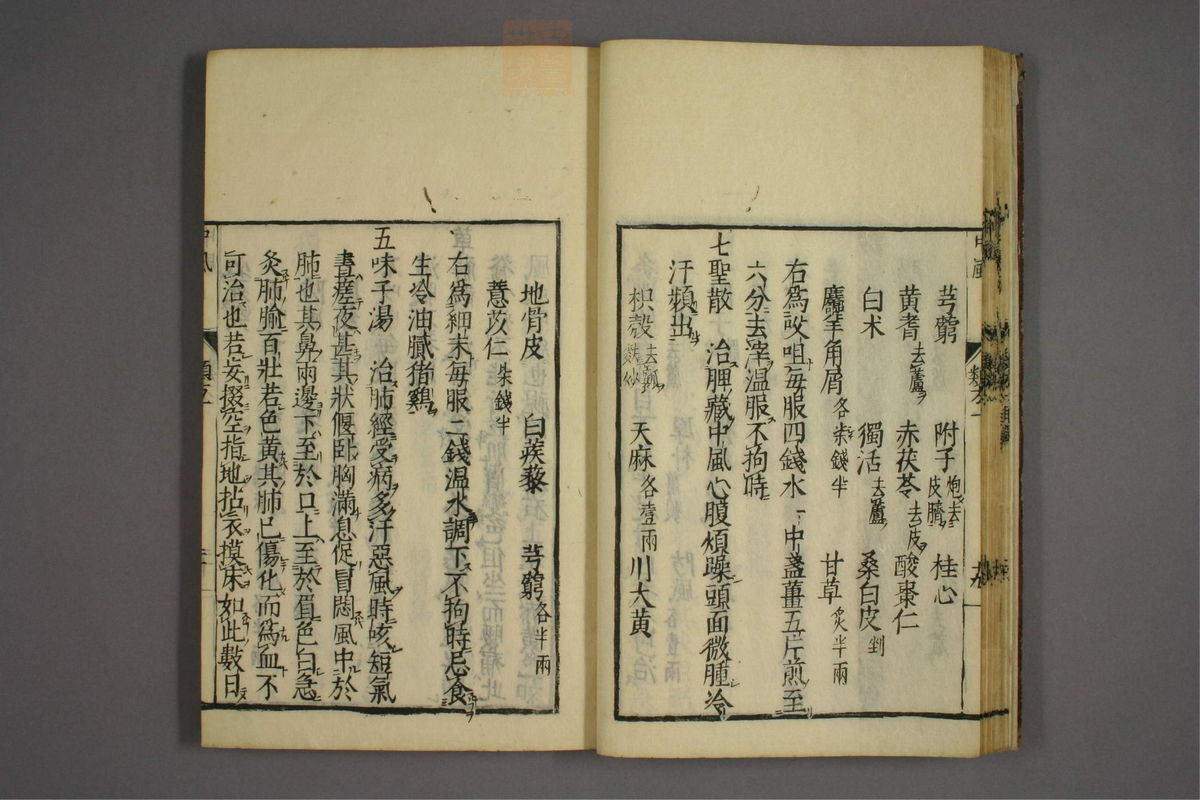 芎藭 附子炮去皮臍 桂心
黄耆去蘆 赤茯苓去皮 酸棗仁
白术 獨活去蘆 桑白皮剉
麢羊角屑各柒錢半 甘草炙半兩
右爲㕮咀毎服四錢水一中盞薑五片煎至
六分去滓温服不拘時
七聖散 治脾藏中風心腹煩躁頭面微腫冷
汗頻出
枳殼去瓤麩炒 天麻各壹兩 川大黄
地骨皮 白蒺藜 芎藭各半兩
薏苡仁柒錢半
右爲細末毎服二錢温水調下不拘時忌食
生冷油膩猪鷄
五味子湯 治肺經受病多汗惡風時咳短氣
晝瘥夜甚其狀偃卧胸滿息促冒悶風中於
肺也其鼻兩邊下至於口上至於眉色白急
灸肺腧百壯若色黄其肺已傷化而爲血不
可治也若妄掇空指地拈衣摸床如此數日